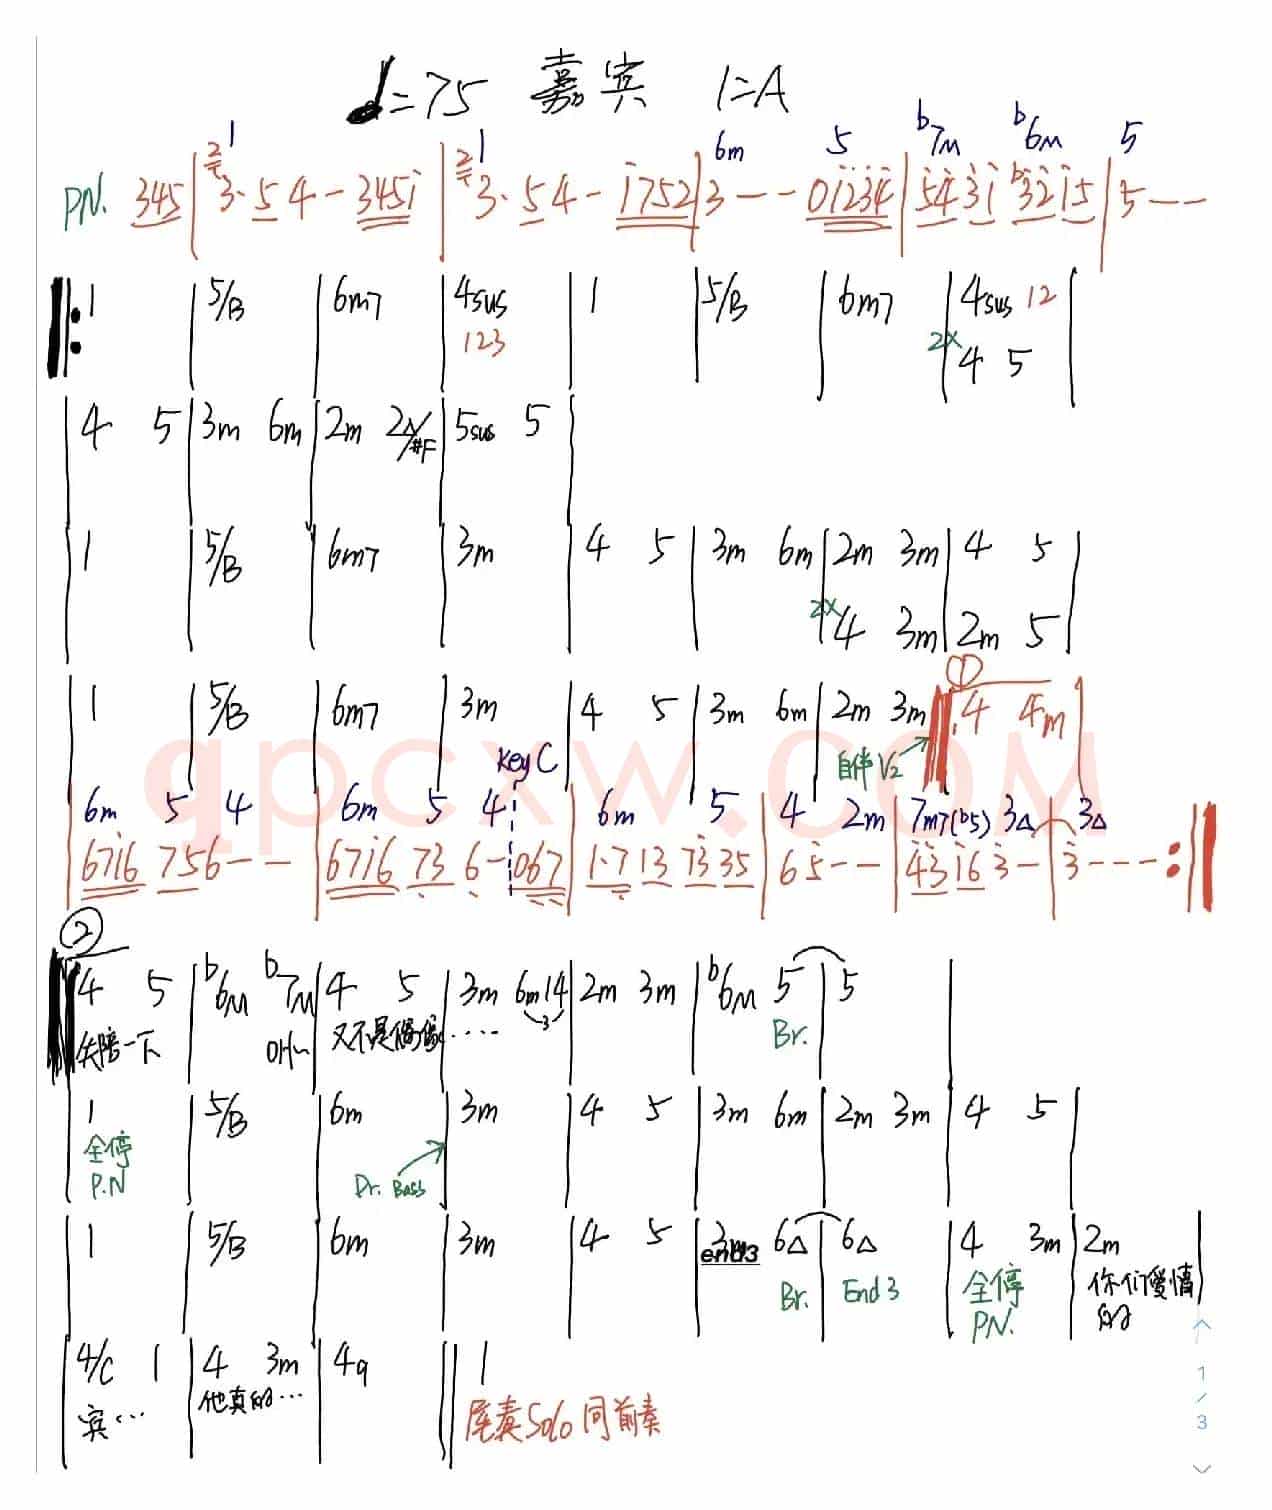 ♩=75 嘉宾 1=A
1 1 6m 5 b7M b6M 5
PN. 345 | 3· 5 4 - 3451 | 3· 5 4 - 1752 | 3 - - 01234 | 5431 b3215 | 5 - -
‖: 1 | 5/B | 6m7 | 4sus | 1 | 5/B | 6m7 | 4sus 12 |
123 2X 4 5
| 4 5 | 3m 6m | 2m 2/#F | 5sus 5 |
| 1 | 5/B | 6m7 | 3m | 4 5 | 3m 6m | 2m 3m | 4 5 |
2X 4 3m | 2m 5 |
①
| 1 | 5/B | 6m7 | 3m | 4 5 | 3m 6m | 2m 3m | 4 4m |
key C 自伴 V2
6m 5 4 6m 5 4 6m 5 4 2m 7m7(b5) 3△ 3△
| 6716 756 - - | 6716 73 6 - 067 | 1·7 13 73 35 | 6 5 - - | 43 16 3 - | 3 - - - :‖
②
| 4 5 | b6M b7M | 4 5 | 3m 6m 14 | 2m 3m | b6M 5 | 5 |
失陪一下 OH~ 又不是偶像 ····· 3 Br.
| 1 | 5/B | 6m | 3m | 4 5 | 3m 6m | 2m 3m | 4 5 |
全停
P.N Dr. Bass
| 1 | 5/B | 6m | 3m | 4 5 | 3m 6△ | 6△ | 4 3m | 2m |
end3 Br. End 3 全停 你们爱情
PN. 的
| 4/C 1 | 4 3m | 4g ‖ 1
宾··· 他真的··· 尾奏Solo同前奏
qpcxw.COM
1
/
3